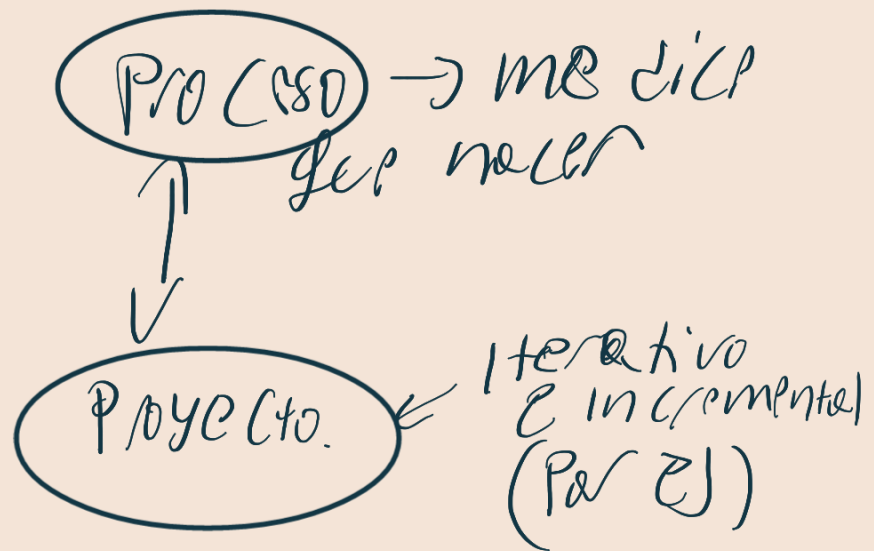 Proceso → me dice
que hacer
Proyecto.
Iterativo
e incremental
(Por EJ)